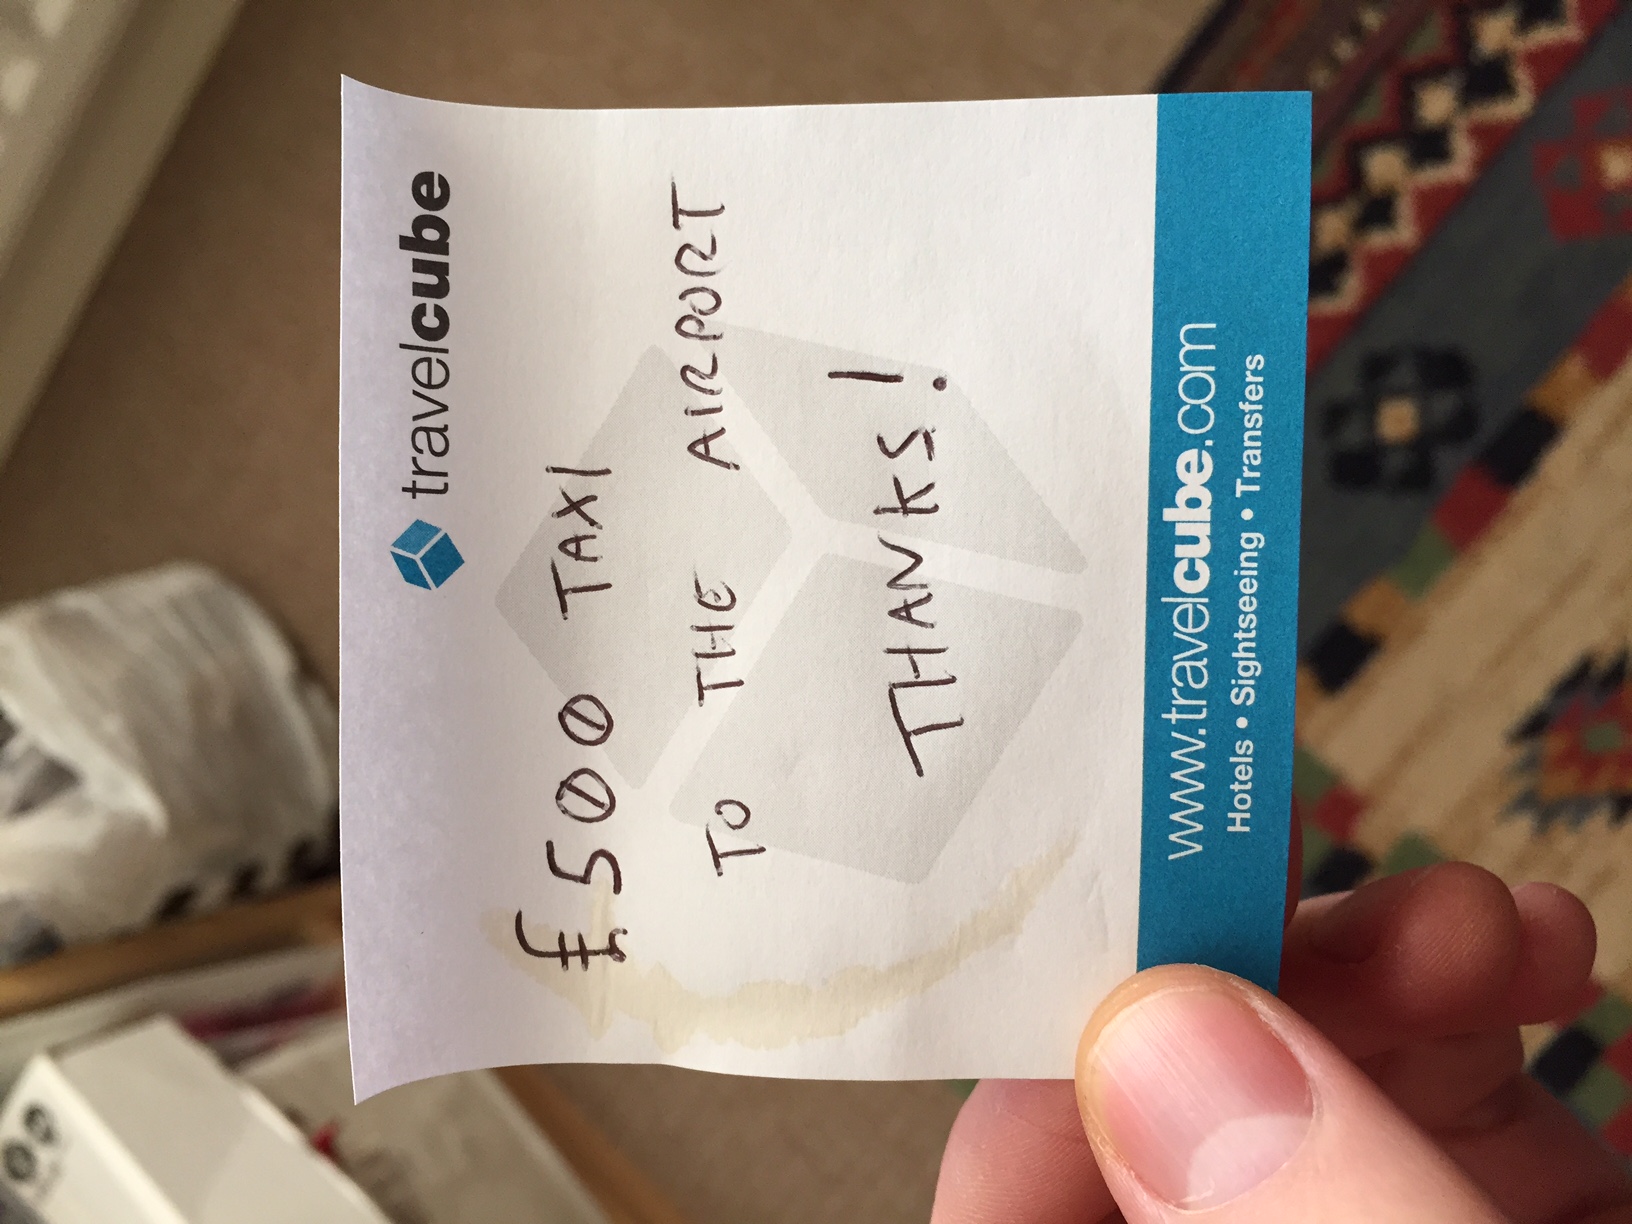 travelcube
£500 TAXI
TO THE AIRPORT
THANKS!
www.travelcube.com
Hotels • Sightseeing • Transfers